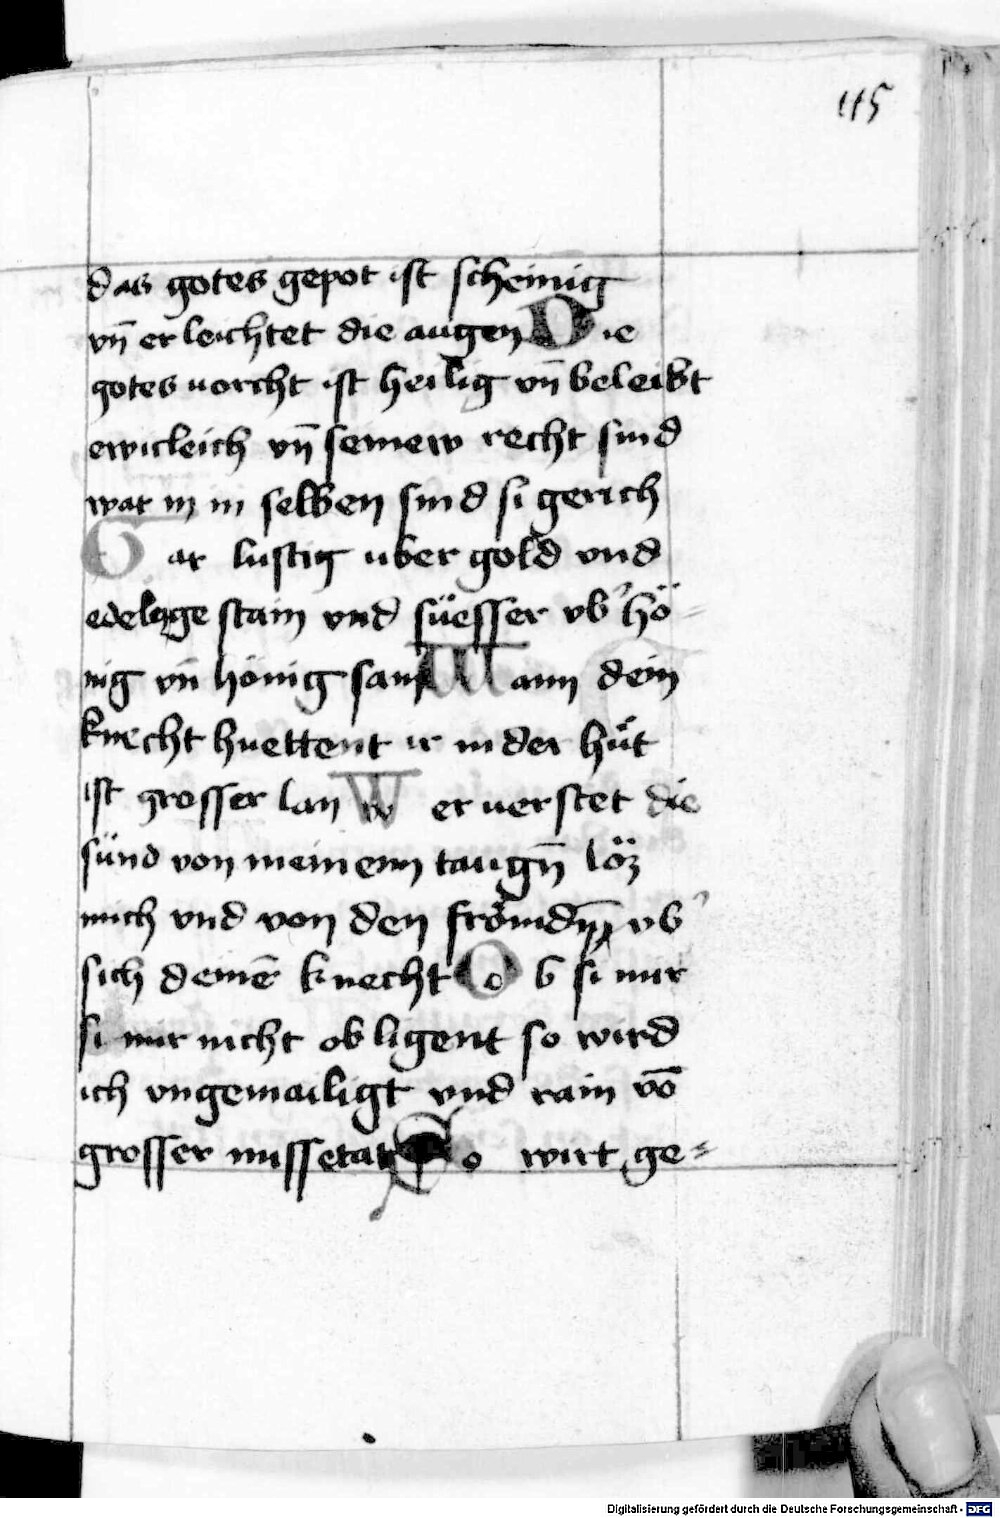 115
das gotes gepot ist scheinig
vn̄ erleichtet die augen Die
gotes uorcht ist heilig vn̄ beleibt
ewicleich vn̄ seinew recht sind
war in in selben sind si gerich
Gar lustig uber gold vnd
edelgestain vnd süesser vb' hö-
nig vn̄ hönig sam Wann dein
knecht huettent ir in der hüt
ist grosser lan Wer uerstet die
sünd von meinenn taugn̄ löz
mich vnd von den frömdn̄ vb'
sich deinē knecht Ob si mir
si mir nicht obligent so wird
ich vngemailigt vnd rain vō
grosser missetat So wirt ge-
Digitalisierung gefördert durch die Deutsche Forschungsgemeinschaft - DFG